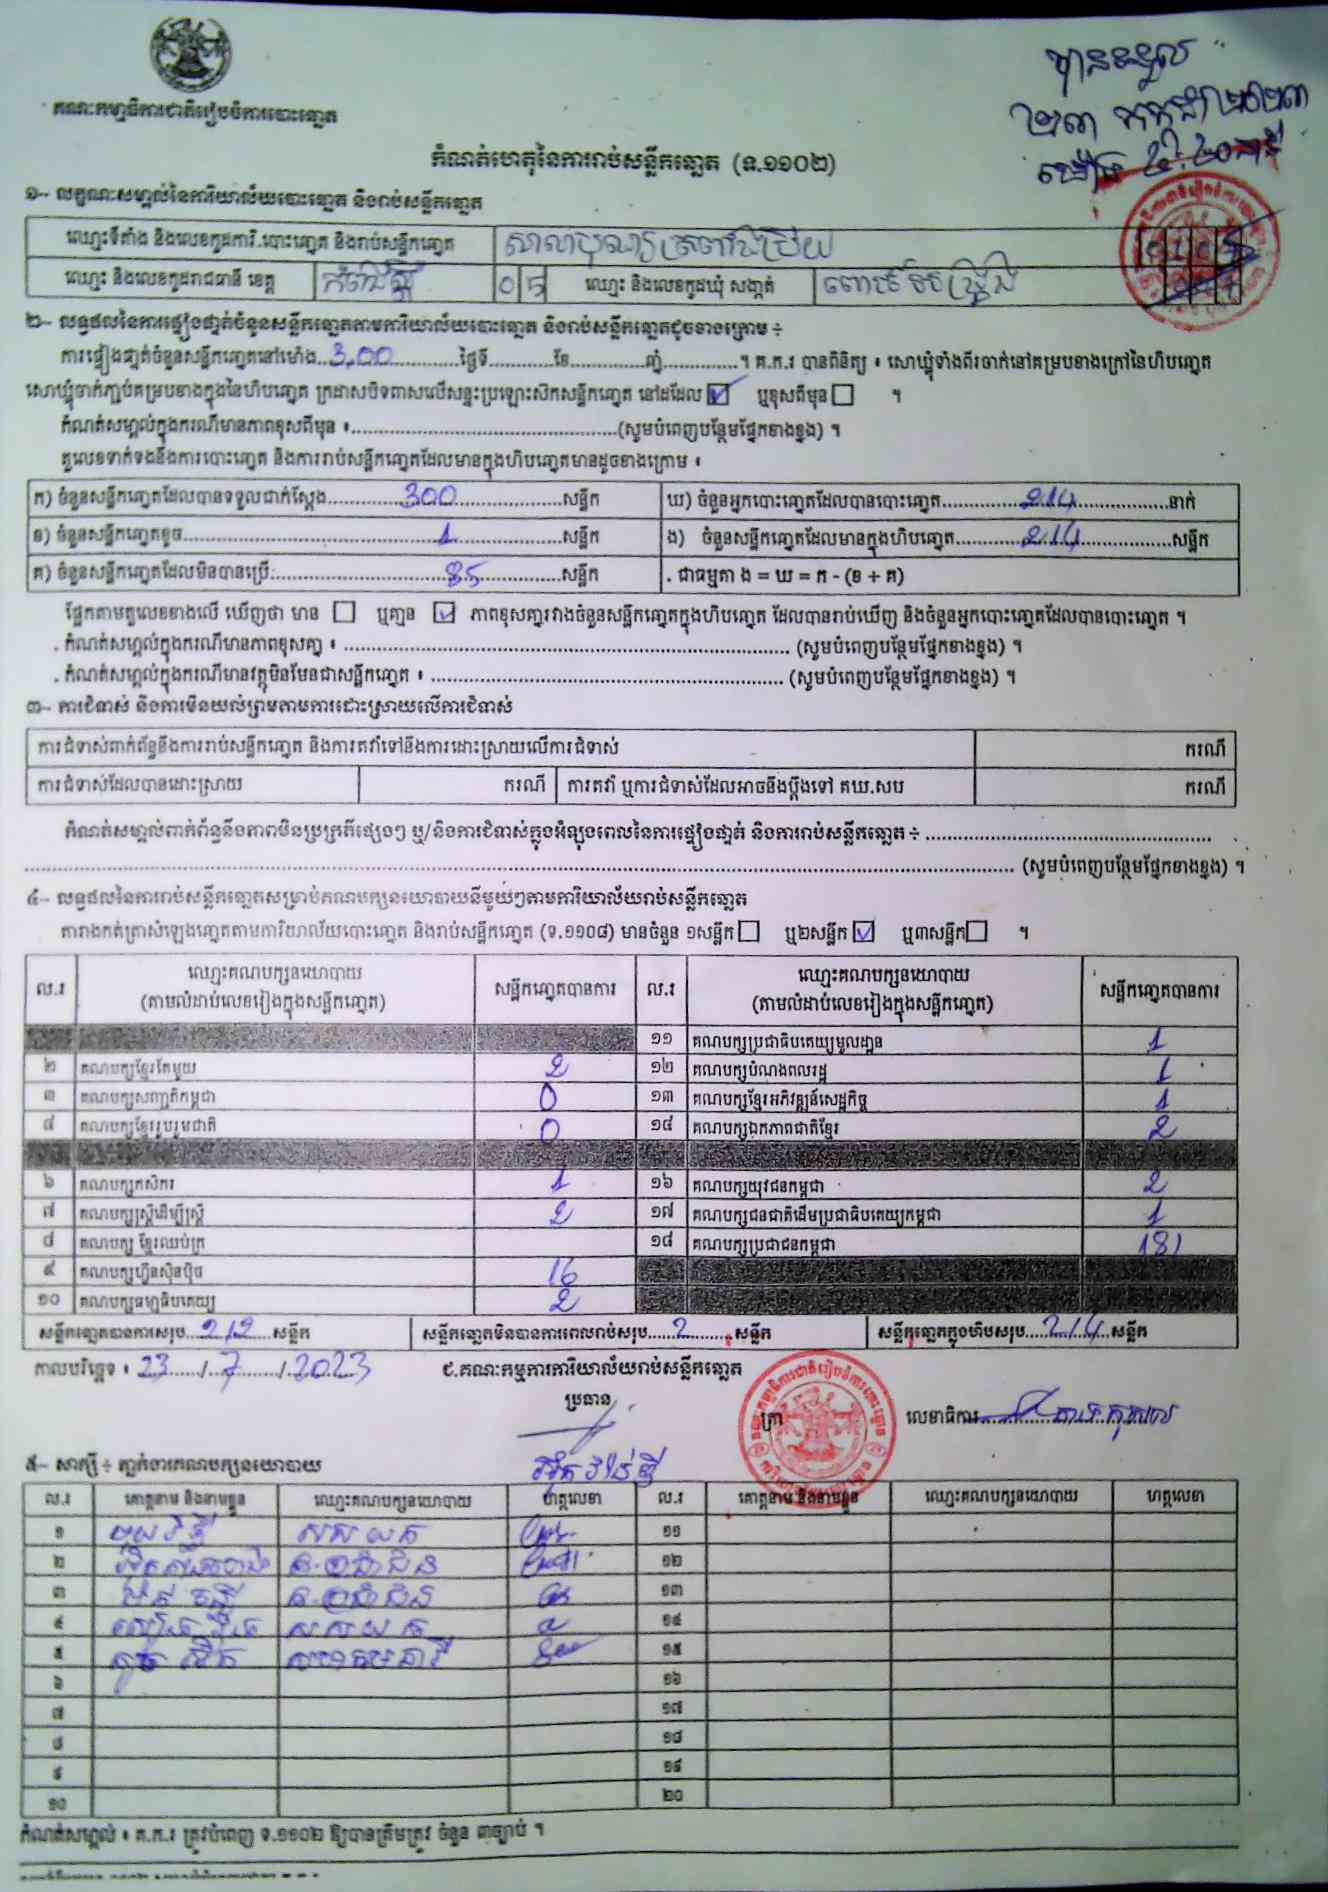 គណៈកម្មាធិការជាតិរៀបចំការបោះឆ្នោត
បានទទួល
២៣ កក្កដា ២០២៣
កំណត់ហេតុនៃការរាប់សន្លឹកឆ្នោត (ទ.១១០២)
១- លក្ខណៈសម្គាល់នៃការិយាល័យបោះឆ្នោត និងរាប់សន្លឹកឆ្នោត
ឈ្មោះទីតាំង និងលេខកូដការិ.បោះឆ្នោត និងរាប់សន្លឹកឆ្នោត សាលាបុណ្យ
ឈ្មោះ និងលេខកូដរាជធានី ខេត្ត កំពង់ស្ពឺ 05 ឈ្មោះ និងលេខកូដឃុំ សង្កាត់
២- លទ្ធផលនៃការផ្ទៀងផ្ទាត់ចំនួនសន្លឹកឆ្នោតតាមការិយាល័យបោះឆ្នោត និងរាប់សន្លឹកឆ្នោតដូចខាងក្រោម ÷
ការផ្ទៀងផ្ទាត់ចំនួនសន្លឹកឆ្នោតនៅម៉ោង...3,00...ថ្ងៃទី...ខែ...ឆ្នាំ...។ គ.ក.រ បានពិនិត្យ ៖ សោឃ្លុំទាំងពីរចាក់នៅគម្របខាងក្រៅនៃហិបឆ្នោត
សោឃ្លុំចាក់ភ្ជាប់គម្របខាងក្នុងនៃហិបឆ្នោត ក្រដាសបិទពាសលើសន្ទះប្រឡោះសិកសន្លឹកឆ្នោត នៅដដែល ☑ ឬខុសពីមុន ☐ ។
កំណត់សម្គាល់ក្នុងករណីមានភាពខុសពីមុន ៖...(សូមបំពេញបន្ថែមផ្នែកខាងខ្នង) ។
តួលេខទាក់ទងនឹងការបោះឆ្នោត និងការរាប់សន្លឹកឆ្នោតដែលមានក្នុងហិបឆ្នោតមានដូចខាងក្រោម ៖
ក) ចំនួនសន្លឹកឆ្នោតដែលបានទទួលជាក់ស្តែង...300...សន្លឹក ឃ) ចំនួនអ្នកបោះឆ្នោតដែលបានបោះឆ្នោត...214...នាក់
ខ) ចំនួនសន្លឹកឆ្នោតខូច...1...សន្លឹក ង) ចំនួនសន្លឹកឆ្នោតដែលមានក្នុងហិបឆ្នោត...214...សន្លឹក
គ) ចំនួនសន្លឹកឆ្នោតដែលមិនបានប្រើ...85...សន្លឹក . ជាធម្មតា ង = ឃ = ក - (ខ + គ)
ផ្អែកតាមតួលេខខាងលើ ឃើញថា មាន ☐ ឬគ្មាន ☑ ភាពខុសគ្នារវាងចំនួនសន្លឹកឆ្នោតក្នុងហិបឆ្នោត ដែលបានរាប់ឃើញ និងចំនួនអ្នកបោះឆ្នោតដែលបានបោះឆ្នោត ។
. កំណត់សម្គាល់ក្នុងករណីមានភាពខុសគ្នា ៖ ... (សូមបំពេញបន្ថែមផ្នែកខាងខ្នង) ។
. កំណត់សម្គាល់ក្នុងករណីមានវត្ថុមិនមែនជាសន្លឹកឆ្នោត ៖ ... (សូមបំពេញបន្ថែមផ្នែកខាងខ្នង) ។
៣- ការជំទាស់ និងការមិនយល់ព្រមតាមការដោះស្រាយលើការជំទាស់
ការជំទាស់ពាក់ព័ន្ធនឹងការរាប់សន្លឹកឆ្នោត និងការតវ៉ាទៅនឹងការដោះស្រាយលើការជំទាស់ ករណី
ការជំទាស់ដែលបានដោះស្រាយ ករណី ការតវ៉ា ឬការជំទាស់ដែលអាចនឹងប្តឹងទៅ គឃ.សប ករណី
កំណត់សម្គាល់ពាក់ព័ន្ធនឹងភាពមិនប្រក្រតីផ្សេងៗ ឬ/និងការជំទាស់ក្នុងអំឡុងពេលនៃការផ្ទៀងផ្ទាត់ និងការរាប់សន្លឹកឆ្នោត ÷ ...
... (សូមបំពេញបន្ថែមផ្នែកខាងខ្នង) ។
៤- លទ្ធផលនៃការរាប់សន្លឹកឆ្នោតសម្រាប់គណបក្សនយោបាយនីមួយៗតាមការិយាល័យរាប់សន្លឹកឆ្នោត
តារាងកត់ត្រាសំឡេងឆ្នោតតាមការិយាល័យបោះឆ្នោត និងរាប់សន្លឹកឆ្នោត (ទ.១១០៨) មានចំនួន ១សន្លឹក ☐ ឬ២សន្លឹក ☑ ឬ៣សន្លឹក ☐ ។
ល.រ ឈ្មោះគណបក្សនយោបាយ (តាមលំដាប់លេខរៀងក្នុងសន្លឹកឆ្នោត) សន្លឹកឆ្នោតបានការ ល.រ ឈ្មោះគណបក្សនយោបាយ (តាមលំដាប់លេខរៀងក្នុងសន្លឹកឆ្នោត) សន្លឹកឆ្នោតបានការ
១១ គណបក្សប្រជាធិបតេយ្យមូលដ្ឋាន 1
២ គណបក្សខ្មែរតែមួយ 2 ១២ គណបក្សបំណងពលរដ្ឋ 1
៣ គណបក្សសញ្ជាតិកម្ពុជា 0 ១៣ គណបក្សខ្មែរអភិវឌ្ឍន៍សេដ្ឋកិច្ច 1
៤ គណបក្សខ្មែររួបរួមជាតិ 0 ១៤ គណបក្សឯកភាពជាតិខ្មែរ 2
៦ គណបក្សកសិករ 1 ១៦ គណបក្សយុវជនកម្ពុជា 2
៧ គណបក្សស្ត្រីដើម្បីស្ត្រី 2 ១៧ គណបក្សជនជាតិដើមប្រជាធិបតេយ្យកម្ពុជា 1
៨ គណបក្ស ខ្មែរឈប់ក្រ ១៨ គណបក្សប្រជាជនកម្ពុជា 181
៩ គណបក្សហ៊្វុនស៊ិនប៉ិច 16
១០ គណបក្សធម្មាធិបតេយ្យ 2
សន្លឹកឆ្នោតបានការសរុប...212...សន្លឹក សន្លឹកឆ្នោតមិនបានការពេលរាប់សរុប...2...សន្លឹក សន្លឹកឆ្នោតក្នុងហិបសរុប...214...សន្លឹក
កាលបរិច្ឆេទ ៖ 23/7/2023 ៩.គណៈកម្មការការិយាល័យរាប់សន្លឹកឆ្នោត
ប្រធាន ត្រា លេខាធិការ
៥- សាក្សី ÷ ភ្នាក់ងារគណបក្សនយោបាយ
ល.រ គោត្តនាម និងនាមខ្លួន ឈ្មោះគណបក្សនយោបាយ ហត្ថលេខា ល.រ គោត្តនាម និងនាមខ្លួន ឈ្មោះគណបក្សនយោបាយ ហត្ថលេខា
១ ស ស យ ក ១១
២ គ.ប្រជាជន ១២
៣ គ.ប្រជាជន ១៣
៤ ស ស យ ក ១៤
៥ ១៥
៦ ១៦
៧ ១៧
៨ ១៨
៩ ១៩
១០ ២០
កំណត់សម្គាល់ ៖ គ.ក.រ ត្រូវបំពេញ ទ.១១០២ ឱ្យបានត្រឹមត្រូវ ចំនួន ៣ច្បាប់ ។